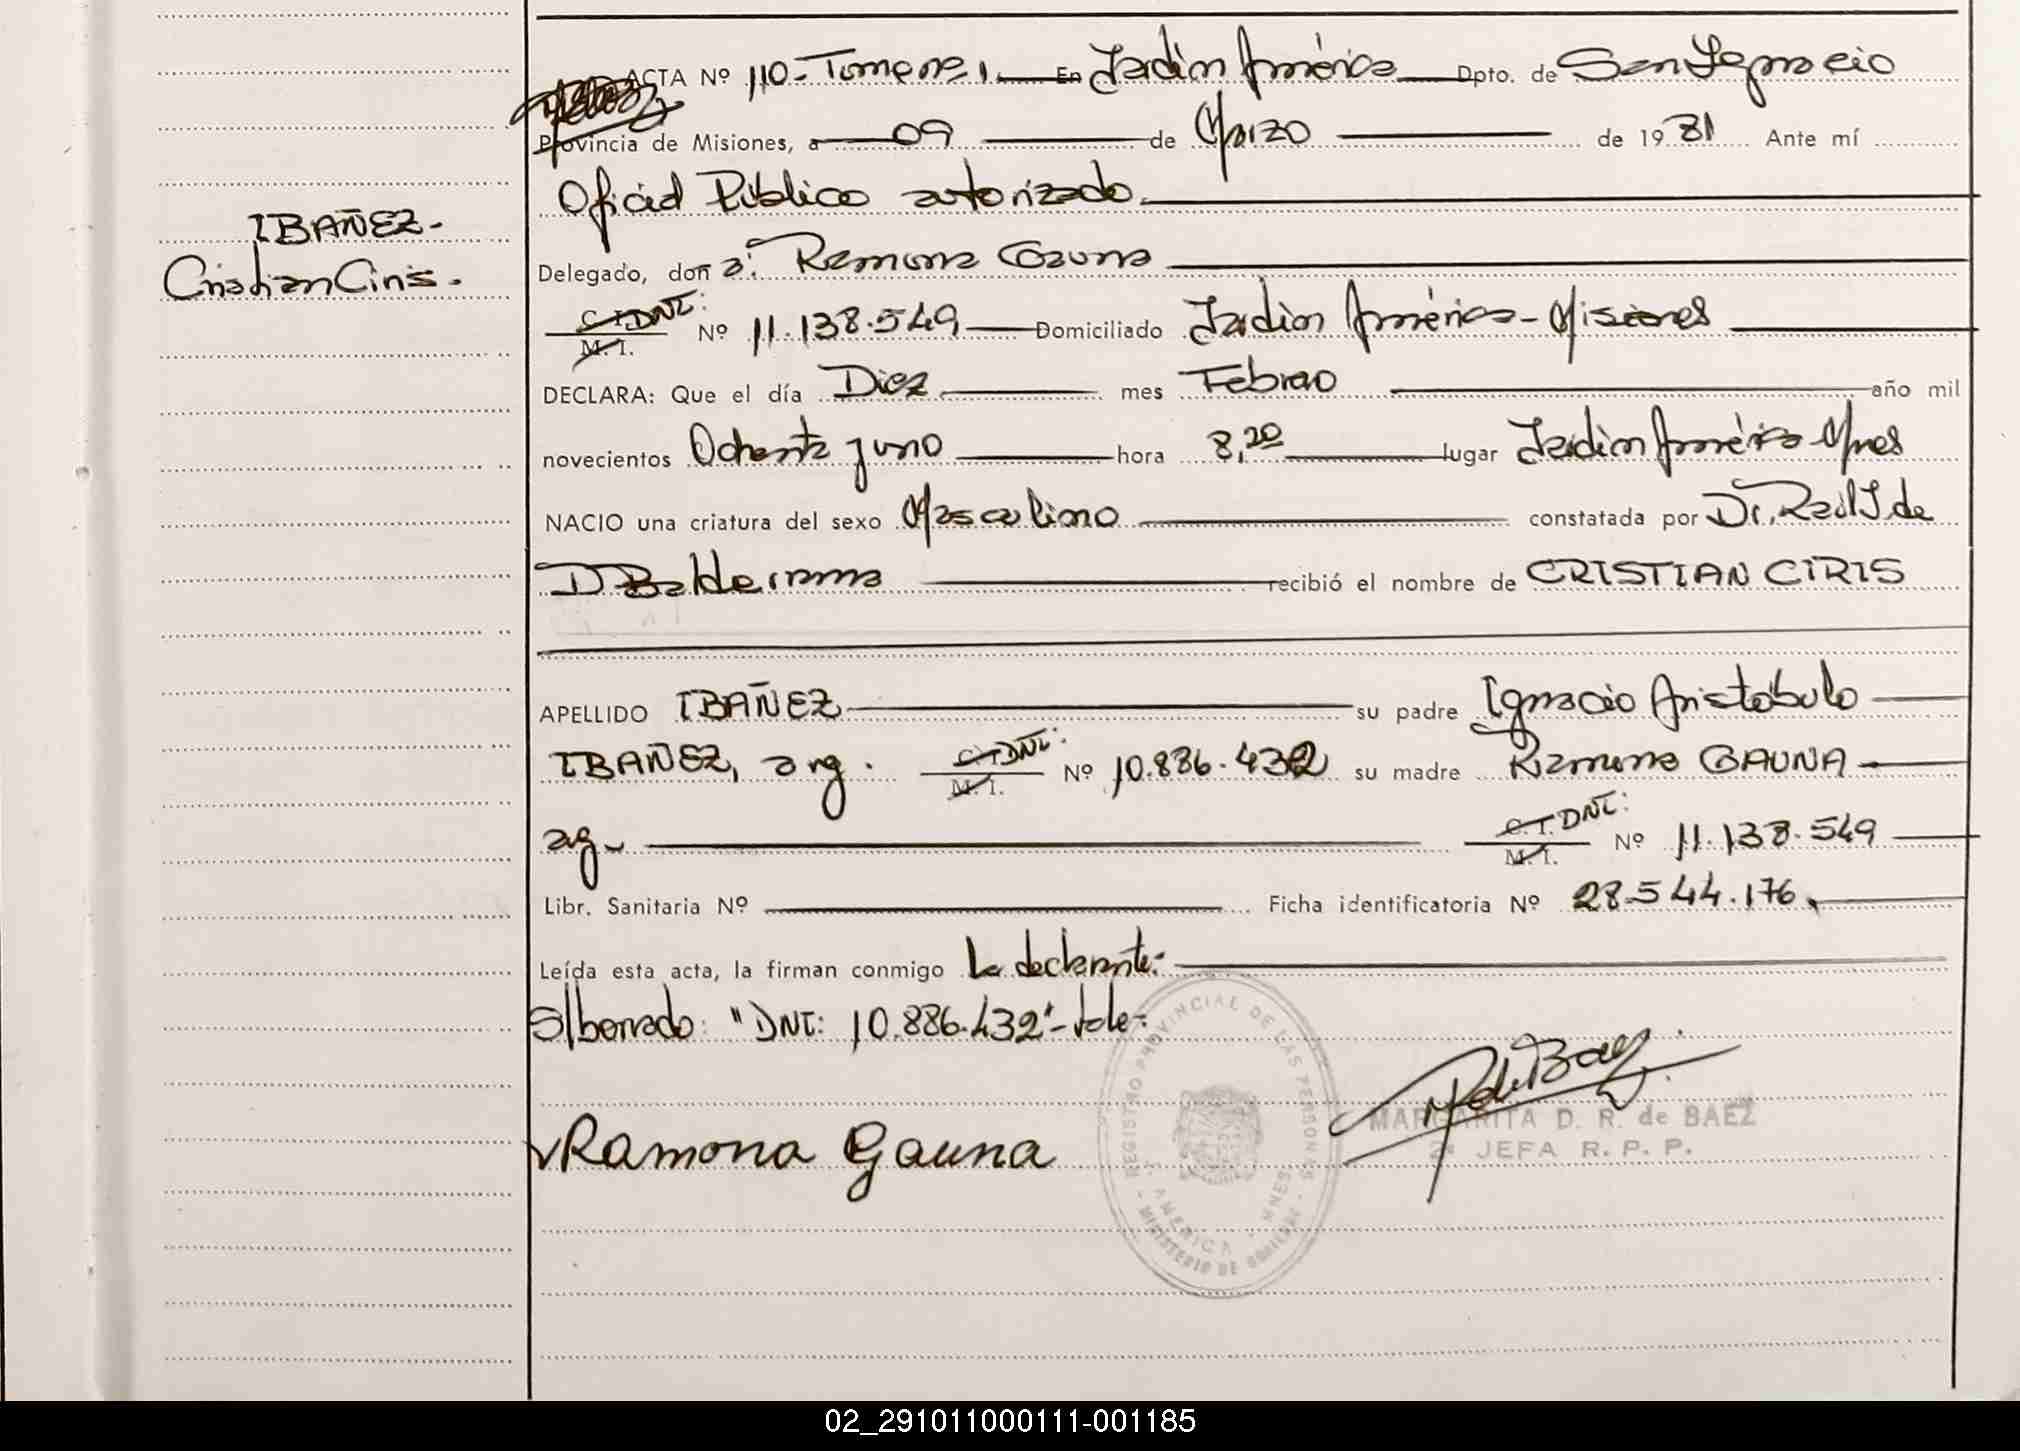 ACTA Nº 110 - Tomo nº 1. En Jardín América Dpto. de San Ignacio
Provincia de Misiones, a 09 de Marzo de 1981 Ante mí
Oficial Público autorizado.
IBAÑEZ-
Cristian Ciris.
Delegado, don a: Ramona Gauna
C. I. DNI:
M. I. Nº 11.138.549 Domiciliado Jardín América - Misiones
DECLARA: Que el día Diez mes Febrero año mil
novecientos Ochenta y uno hora 8,20 lugar Jardín América - Mnes
NACIO una criatura del sexo Masculino constatada por Dr. Raúl J. de
D Balderrama recibió el nombre de CRISTIAN CIRIS
APELLIDO IBAÑEZ su padre Ignacio Aristóbulo
IBAÑEZ, arg. C. I. DNI: M. I. Nº 10.886.432 su madre Ramona GAUNA
arg. C. I. DNI: M. I. Nº 11.138.549
Libr. Sanitaria Nº Ficha identificatoria Nº 28.544.176.
Leída esta acta, la firman conmigo La declarante:-
S/borrado: "DNI: 10.886.432"- Vale:-
REGISTRO PROVINCIAL DE LAS PERSONAS
AMERICA - MNES
MINISTERIO DE GOBIERNO
R de Baez
MARGARITA D. R. de BAEZ
2ª JEFA R. P. P.
Ramona Gauna
02_291011000111-001185